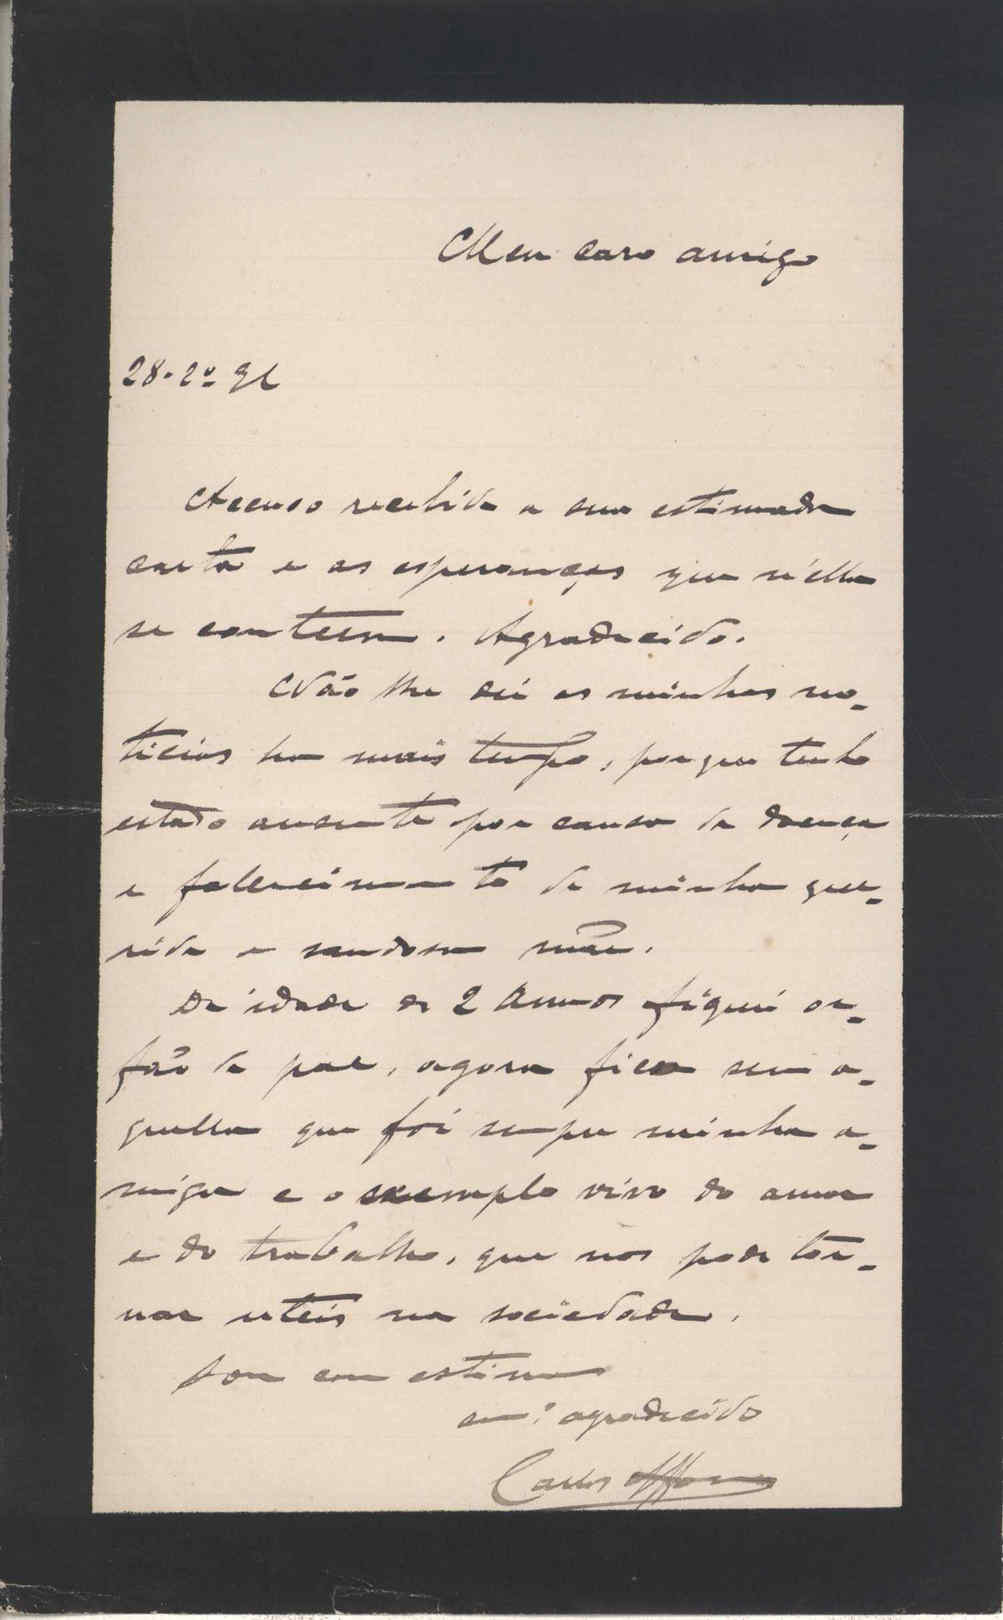 Meu caro amigo
28-2º 91
Accuso recebida a sua estimada
carta e as esperanças que n'ella
se contem. Agradecido.
Não lhe dei as minhas no-
ticias ha mais tempo, porque tenho
estado ausente por causa da doença
e fallecimento da minha que-
rida e saudosa mãe.
Da idade de 2 annos fiquei or-
fão de pae, agora fico sem a-
quella que foi sempre minha a-
miga e o exemplo vivo do amor
e do trabalho, que nos pode tor-
nar uteis na sociedade.
Sou com estima
am.º agradecido
Carlos Affonso